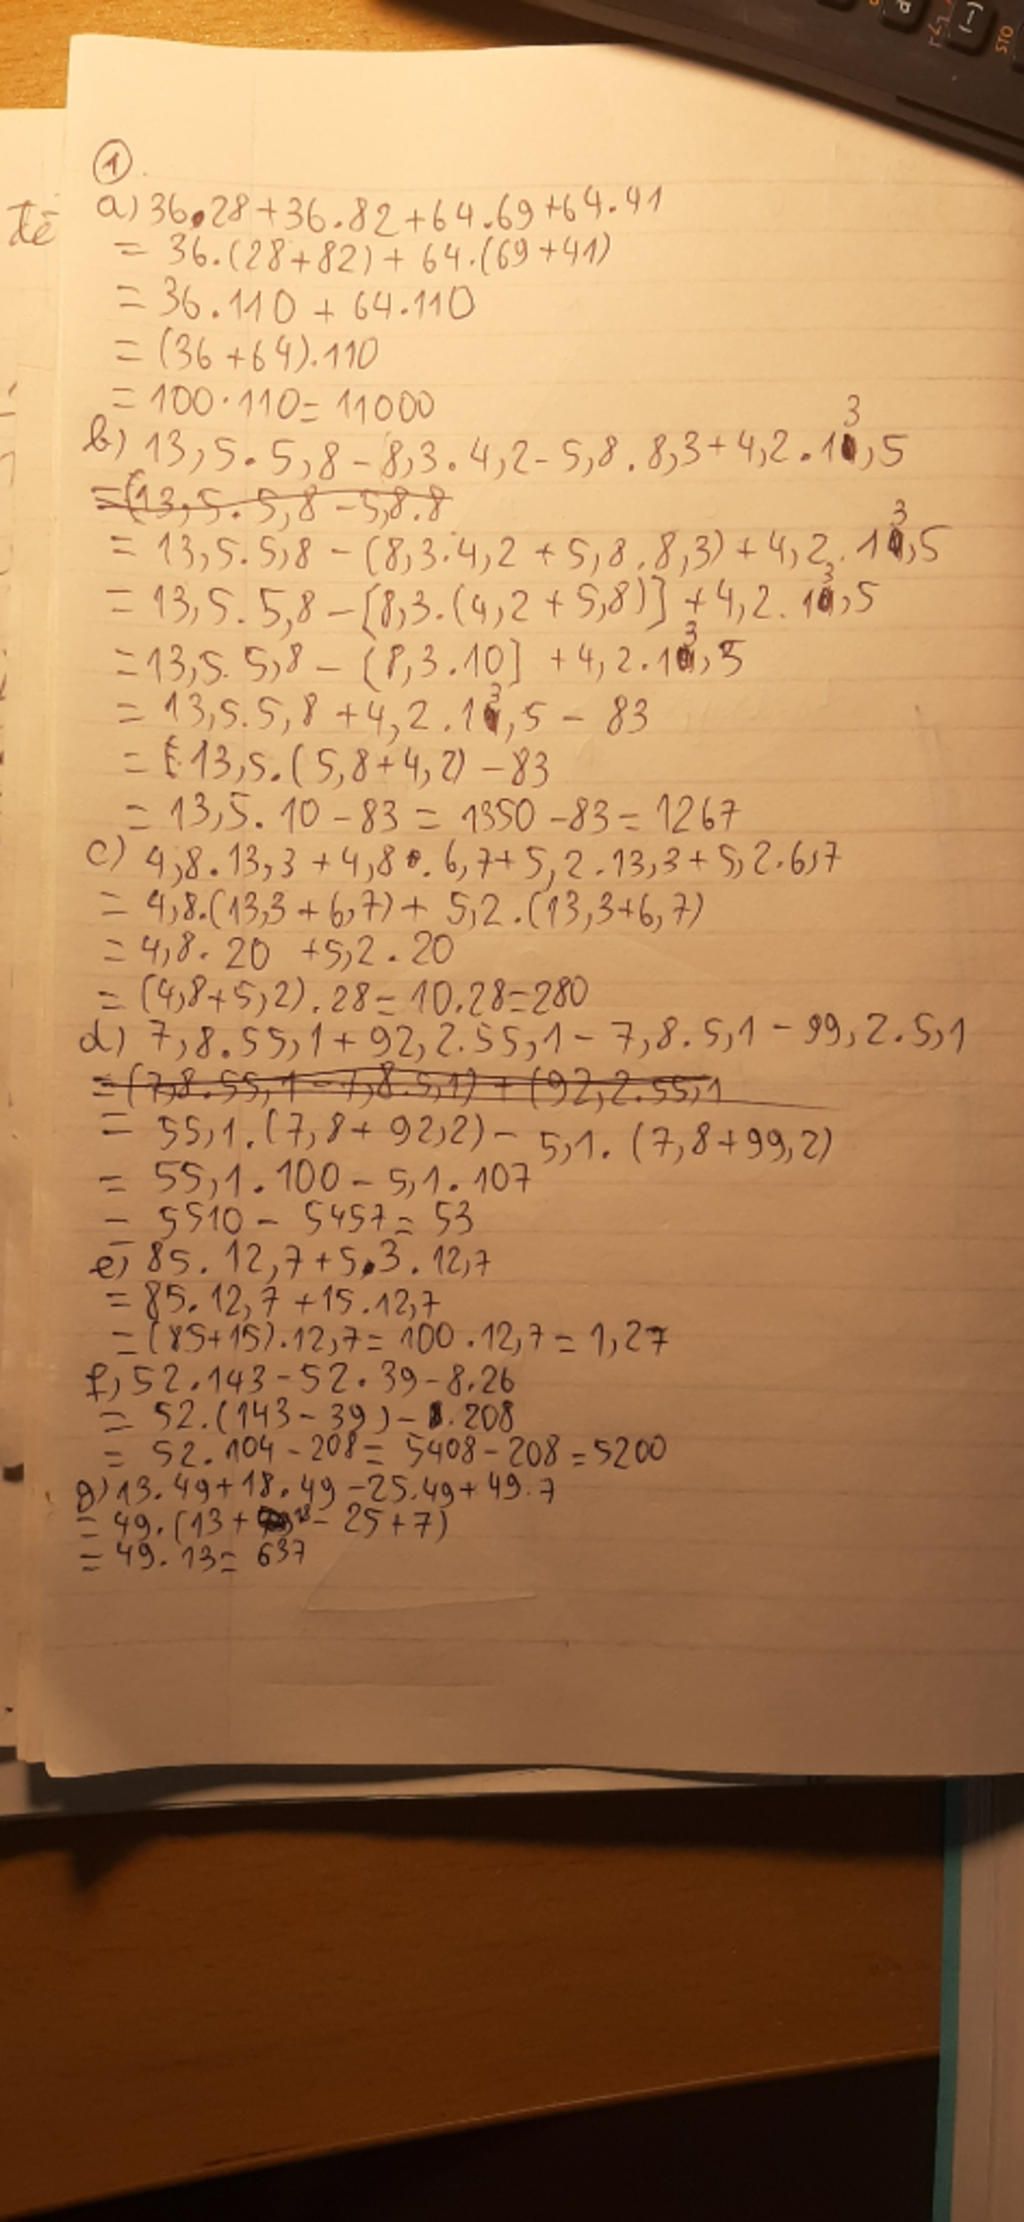 STO
(-)
đề
1
a) 36.28+36.82+64.69+64.41
= 36.(28+82)+64.(69+41)
= 36.110 + 64.110
= (36+64).110
= 100.110= 11000
b) 13,5.5,8-8,3.4,2-5,8.8,3+4,2.13,5
=(13,5.5,8-5,8.8
= 13,5.5,8-(8,3.4,2+5,8.8,3)+4,2.13,5
= 13,5.5,8-[8,3.(4,2+5,8)]+4,2.13,5
=13,5.5,8-[8,3.10]+4,2.13,5
= 13,5.5,8+4,2.13,5-83
= 13,5.(5,8+4,2)-83
= 13,5.10-83=1350-83=1267
c) 4,8.13,3+4,8.6,7+5,2.13,3+5,2.6,7
= 4,8.(13,3+6,7)+5,2.(13,3+6,7)
= 4,8.20 +5,2.20
= (4,8+5,2).28=10.28=280
d) 7,8.55,1+92,2.55,1-7,8.5,1-99,2.5,1
=(7,8.55,1-7,8.5,1)+(92,2.55,1
= 55,1.(7,8+92,2)-5,1.(7,8+99,2)
= 55,1.100-5,1.107
= 5510-5457=53
e) 85.12,7+5.3.12,7
= 85.12,7+15.12,7
= (85+15).12,7=100.12,7=1,27
f) 52.143-52.39-8.26
= 52.(143-39)-208
= 52.104-208=5408-208=5200
g) 13.49+18.49-25.49+49.7
= 49.(13+18-25+7)
= 49.13= 637